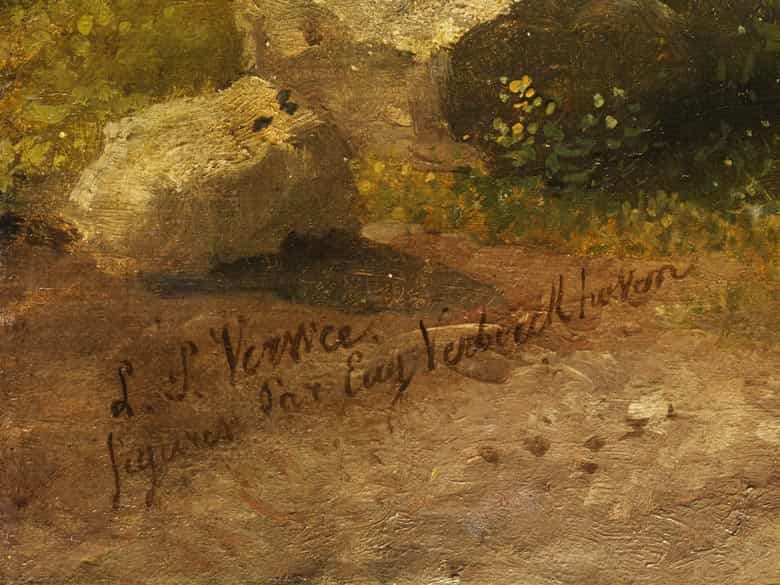 L. P. Verwée.
figures Par Eug Verboeckhoven